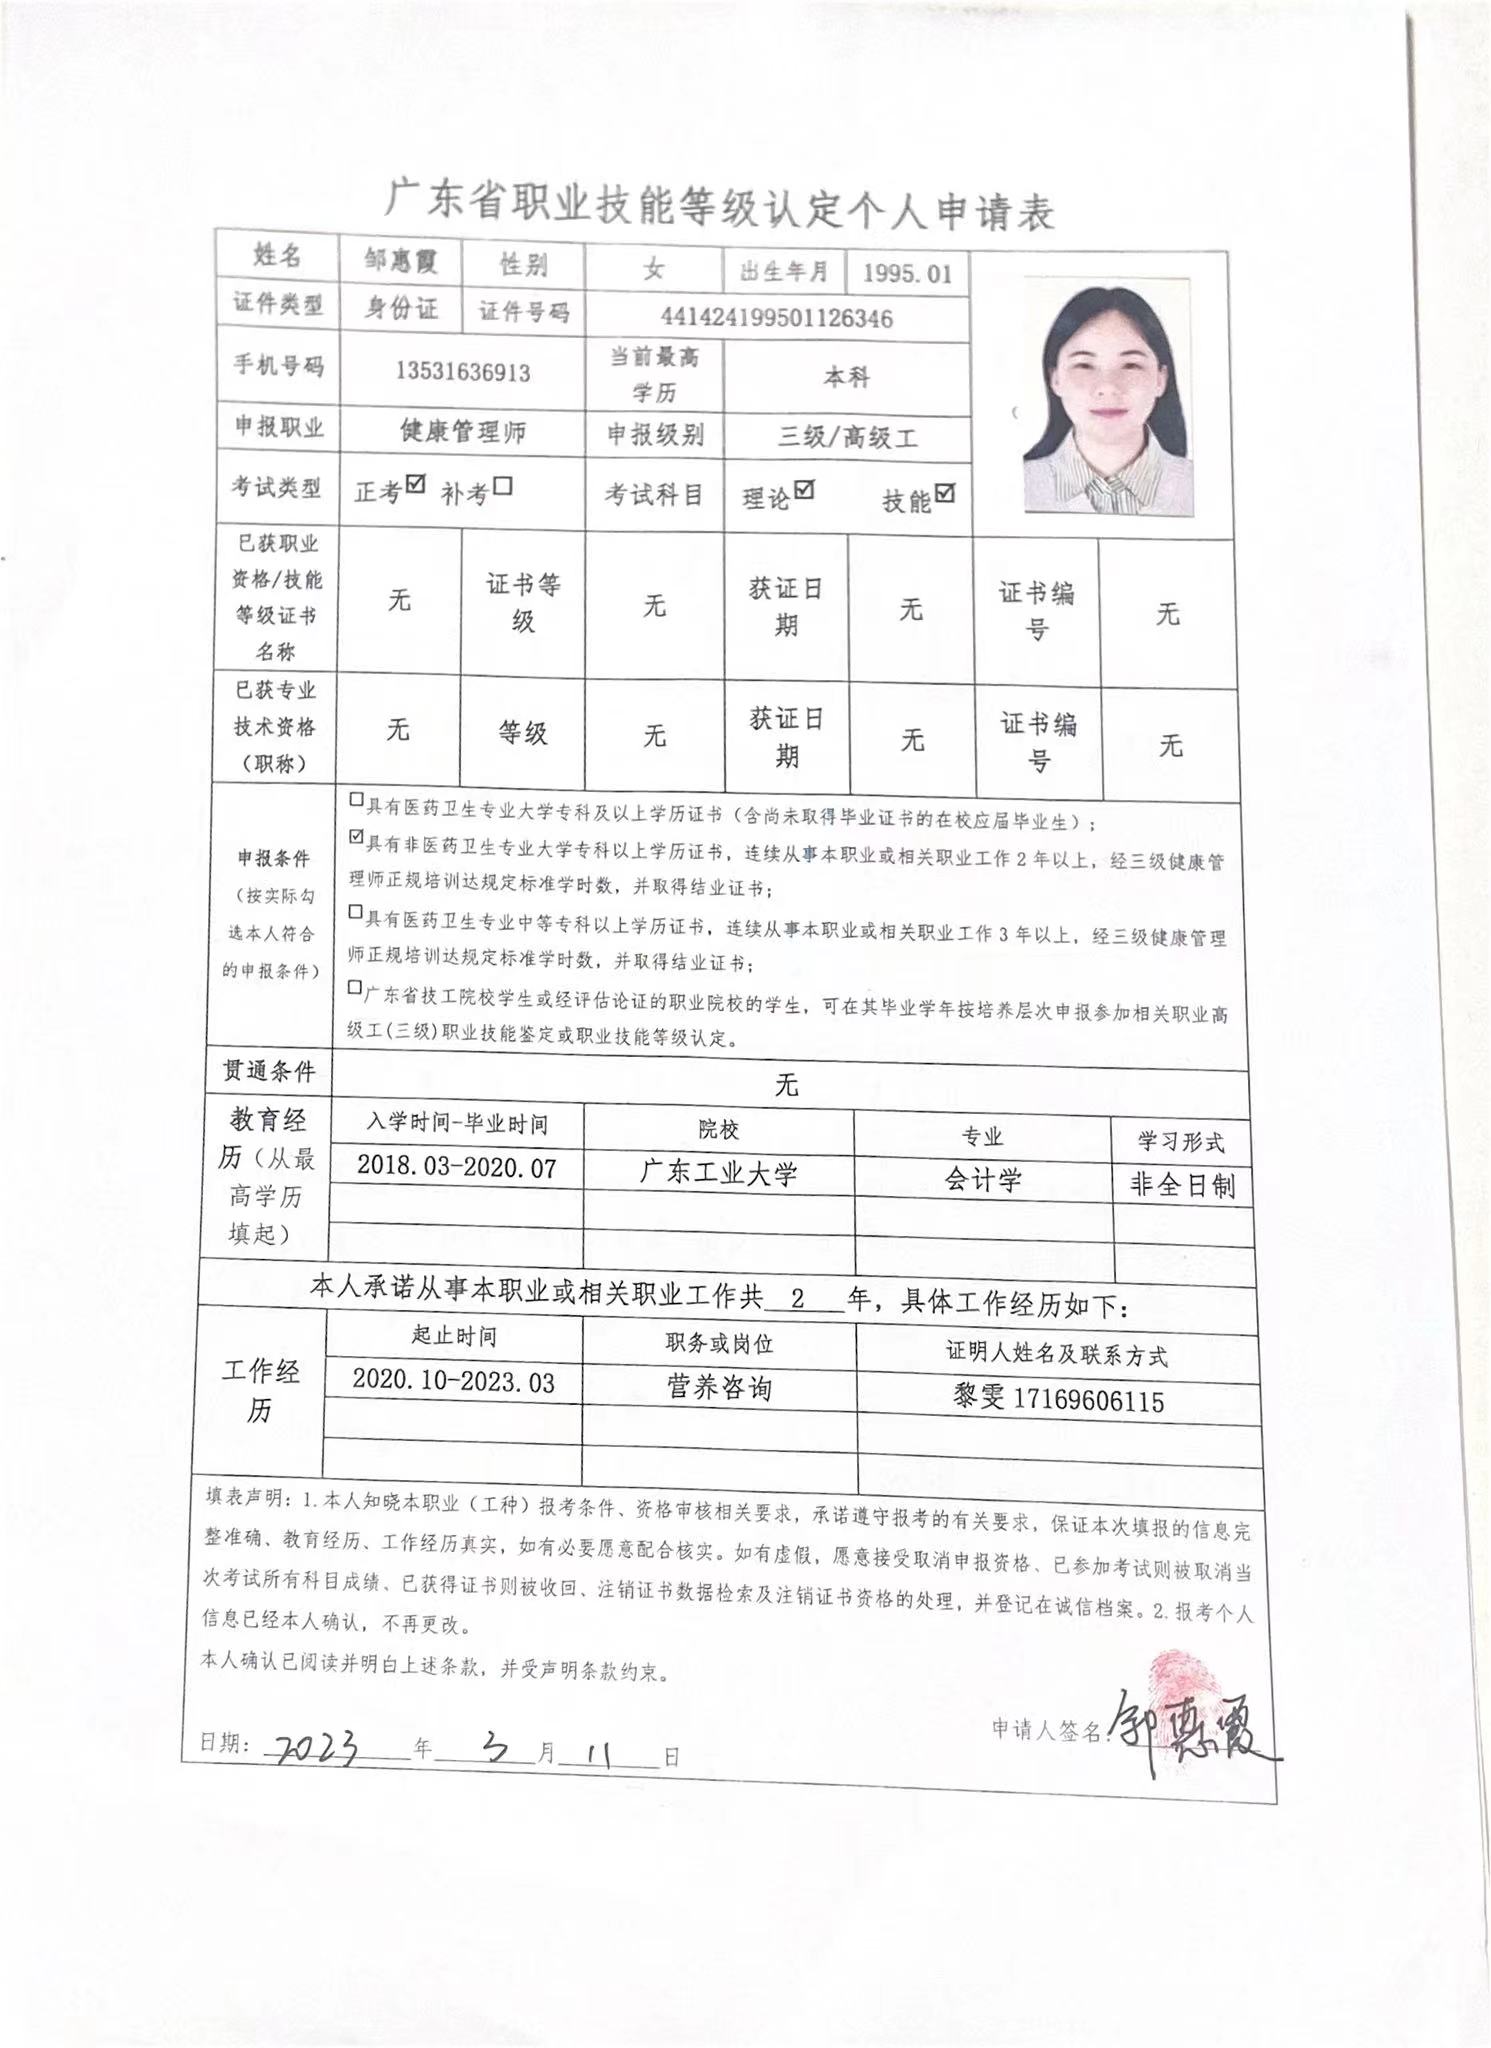 广东省职业技能等级认定个人申请表
姓名 邹惠霞 性别 女 出生年月 1995.01
证件类型 身份证 证件号码 441424199501126346
手机号码 13531636913 当前最高学历 本科
申报职业 健康管理师 申报级别 三级/高级工
考试类型 正考☑ 补考☐ 考试科目 理论☑ 技能☑
已获职业资格/技能等级证书名称 无 证书等级 无 获证日期 无 证书编号 无
已获专业技术资格（职称） 无 等级 无 获证日期 无 证书编号 无
申报条件（按实际勾选本人符合的申报条件）
☐具有医药卫生专业大学专科及以上学历证书（含尚未取得毕业证书的在校应届毕业生）；
☑具有非医药卫生专业大学专科以上学历证书，连续从事本职业或相关职业工作2年以上，经三级健康管
理师正规培训达规定标准学时数，并取得结业证书；
☐具有医药卫生专业中等专科以上学历证书，连续从事本职业或相关职业工作3年以上，经三级健康管理
师正规培训达规定标准学时数，并取得结业证书；
☐广东省技工院校学生或经评估论证的职业院校的学生，可在其毕业学年按培养层次申报参加相关职业高
级工(三级)职业技能鉴定或职业技能等级认定。
贯通条件 无
教育经历（从最高学历填起） 入学时间-毕业时间 院校 专业 学习形式
2018.03-2020.07 广东工业大学 会计学 非全日制
本人承诺从事本职业或相关职业工作共 2 年，具体工作经历如下：
工作经历 起止时间 职务或岗位 证明人姓名及联系方式
2020.10-2023.03 营养咨询 黎雯 17169606115
填表声明：1.本人知晓本职业（工种）报考条件、资格审核相关要求，承诺遵守报考的有关要求，保证本次填报的信息完
整准确、教育经历、工作经历真实，如有必要愿意配合核实。如有虚假，愿意接受取消申报资格、已参加考试则被取消当
次考试所有科目成绩、已获得证书则被收回、注销证书数据检索及注销证书资格的处理，并登记在诚信档案。2.报考个人
信息已经本人确认，不再更改。
本人确认已阅读并明白上述条款，并受声明条款约束。
申请人签名：邹惠霞
日期：2023年3月11日